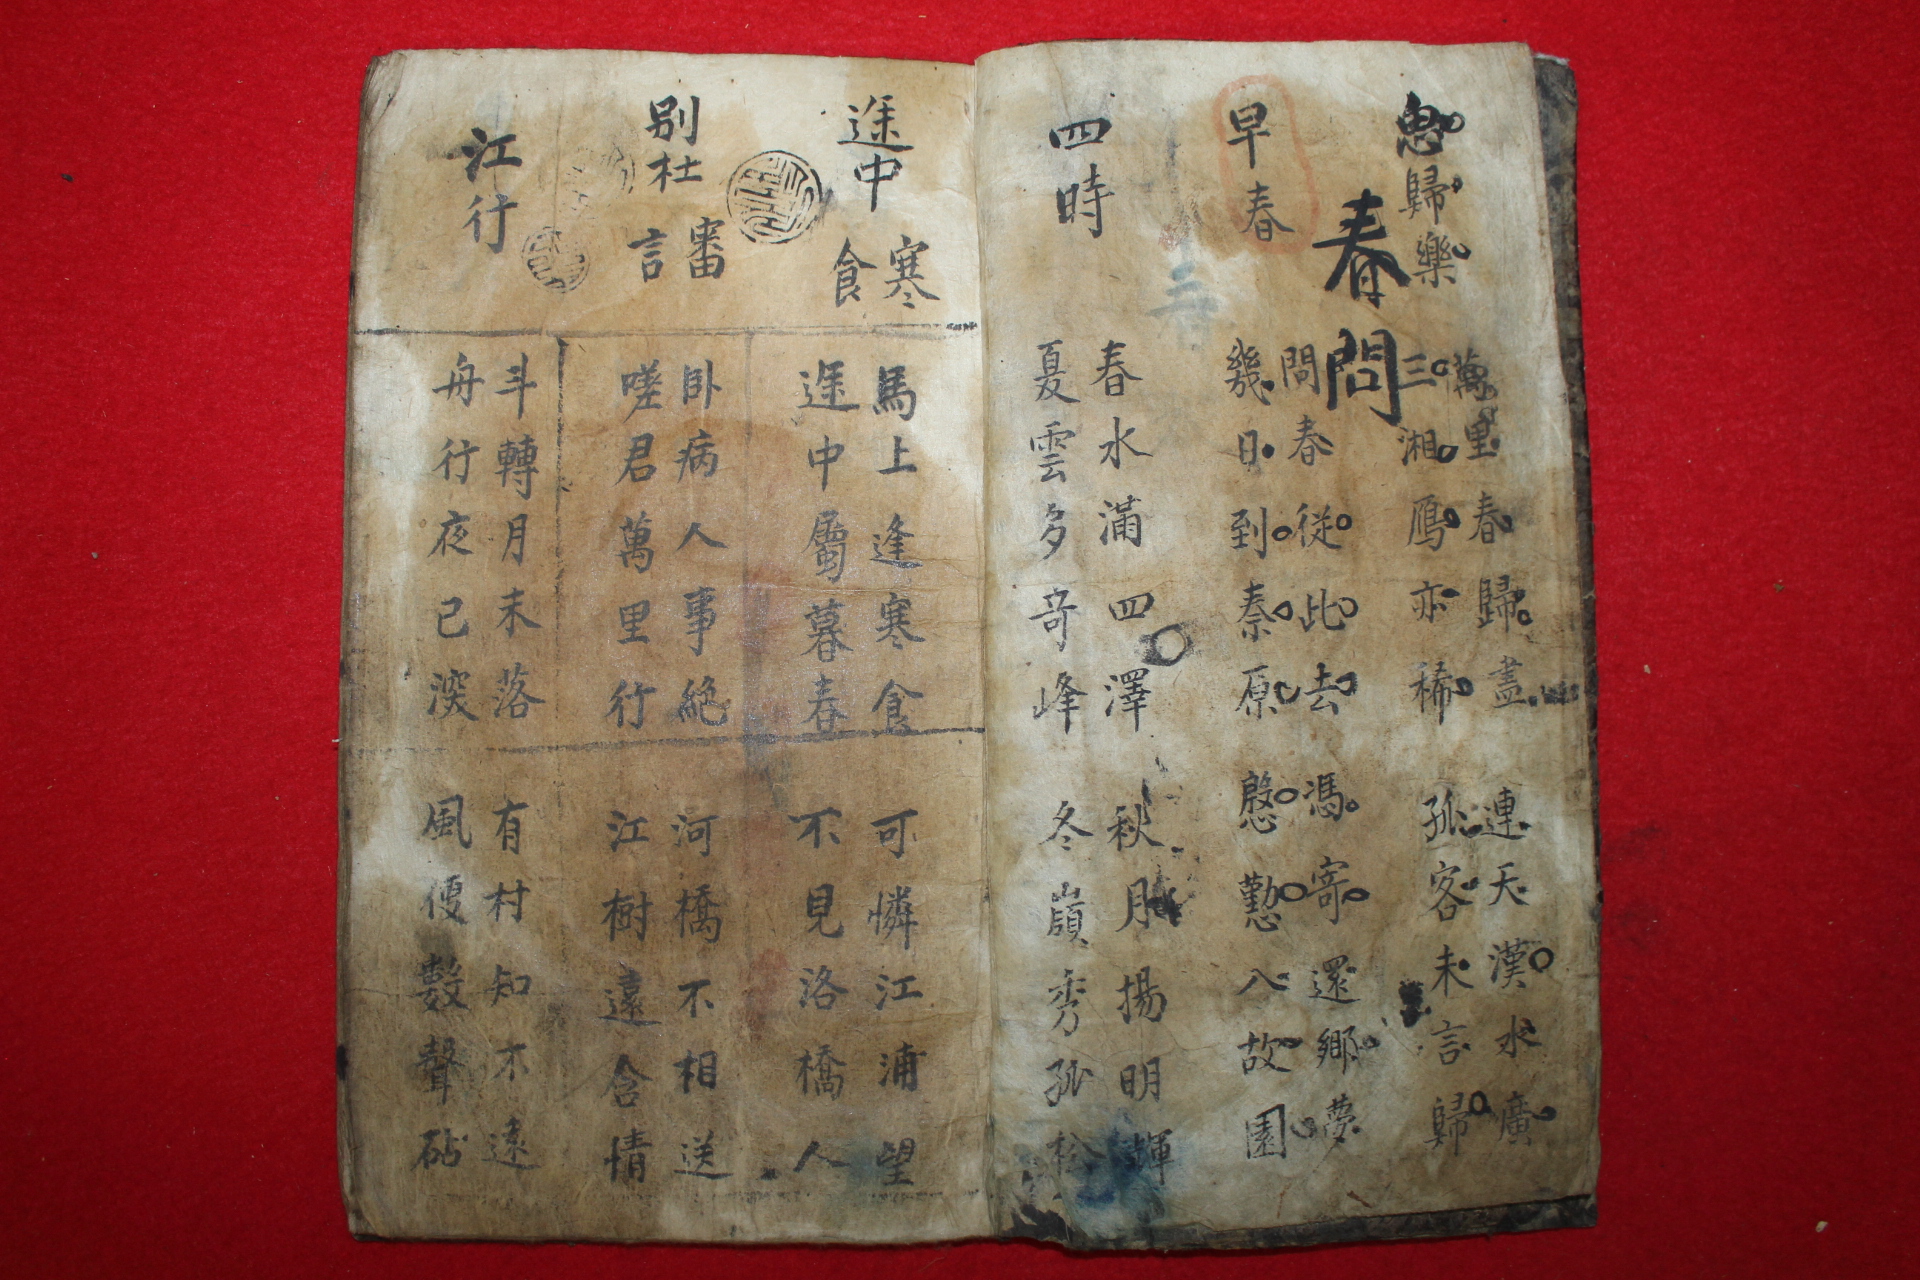 息歸樂
萬里春歸盡
三湘鴈亦稀
連天漢水廣
孤客未言歸
春問
早春
問春從此去
幾日到秦原
馮寄還鄉夢
慇懃入故園
四時
春水滿四澤
夏雲多奇峰
秋月揚明輝
冬嶺秀孤松
途中寒食
馬上逢寒食
途中屬暮春
可憐江浦望
不見洛橋人
別杜審言
臥病人事絶
嗟君萬里行
河橋不相送
江樹遠含情
江行
斗轉月未落
舟行夜已深
有村知不遠
風便數聲砧